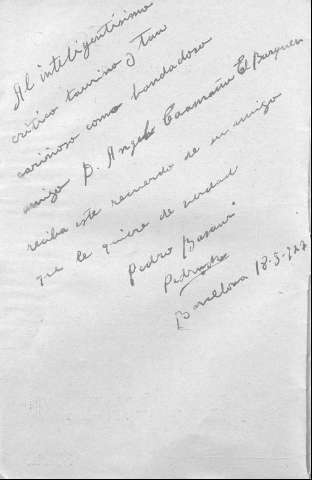 Al inteligentísimo
crítico taurino y tan
cariñoso como bondadoso
amigo D. Angel Caamaño El Barquero
reciba este recuerdo de su amigo
que le quiere de verdad
Pedro Basauri
Pedrucho
Barcelona 18-5-927